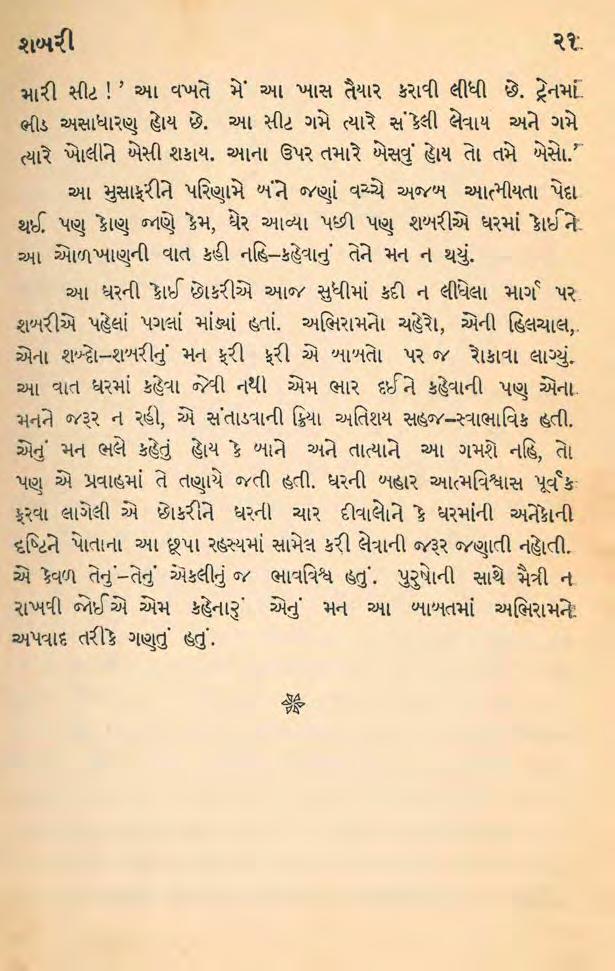 શબરી ૨૧
મારી સીટ ! ’ આ વખતે મેં આ ખાસ તૈયાર કરાવી લીધી છે. ટ્રેનમાં
ભીડ અસાધારણ હોય છે. આ સીટ ગમે ત્યારે સંકેલી લેવાય અને ગમે
ત્યારે ખોલીને બેસી શકાય. આના ઉપર તમારે બેસવું હોય તો તમે બેસો.’
આ મુસાફરીને પરિણામે બંને જણાં વચ્ચે અજબ આત્મીયતા પેદા
થઈ. પણ કોણ જાણે કેમ, ઘેર આવ્યા પછી પણ શબરીએ ઘરમાં કોઈને
આ ઓળખાણની વાત કહી નહિ–કહેવાનું તેને મન ન થયું.
આ ઘરની કોઈ છોકરીએ આજ સુધીમાં કદી ન લીધેલા માર્ગ પર
શબરીએ પહેલાં પગલાં માંડ્યાં હતાં. અભિરામનો ચહેરો, એની હિલચાલ,
એના શબ્દો–શબરીનું મન ફરી ફરી એ બાબતો પર જ રોકાવા લાગ્યું.
આ વાત ઘરમાં કહેવા જેવી નથી એમ ભાર દઈને કહેવાની પણ એના
મનને જરૂર ન રહી, એ સંતાડવાની ક્રિયા અતિશય સહજ–સ્વાભાવિક હતી.
એનું મન ભલે કહેતું હોય કે બાને અને તાત્યાને આ ગમશે નહિ, તો
પણ એ પ્રવાહમાં તે તણાયે જતી હતી. ઘરની બહાર આત્મવિશ્વાસ પૂર્વક
ફરવા લાગેલી એ છોકરીને ઘરની ચાર દીવાલોને કે ઘરમાંની અનેકોની
દૃષ્ટિને પોતાના આ છૂપા રહસ્યમાં સામેલ કરી લેવાની જરૂર જણાતી નહોતી.
એ કેવળ તેનું–તેનું એકલીનું જ ભાવવિશ્વ હતું. પુરુષોની સાથે મૈત્રી ન
રાખવી જોઈએ એમ કહેનારું એનું મન આ બાબતમાં અભિરામને
અપવાદ તરીકે ગણતું હતું.